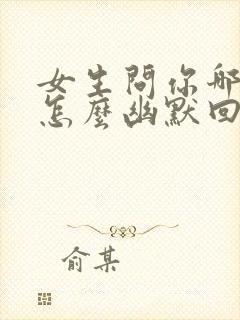 女生問你哪
怎麼幽默回
俞某